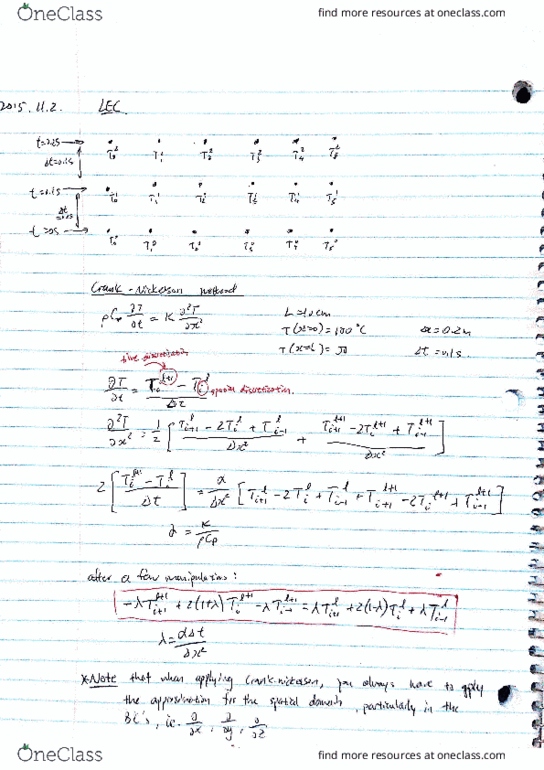 OneClass
find more resources at oneclass.com
2015.11.2. LEC
t=0.2s → T₀² T₁² T₂² T₃² T₄² T₅²
Δt=0.1s
t=0.1s → T₀¹ T₁¹ T₂¹ T₃¹ T₄¹ T₅¹
Δt
t=0s → T₀⁰ T₁⁰ T₂⁰ T₃⁰ T₄⁰ T₅⁰
Crank-Nickerson method
ρCp ∂T/∂t = K ∂²T/∂x²
L=10cm
T(x=0)=100°C
T(x=L)= 50
Δt=0.1s.
time discretization
∂T/∂t = (Tᵢˡ⁺¹ − Tᵢˡ)/Δt spatial discretization.
∂²T/∂x² = 1/2 [ (Tᵢ₊₁ˡ − 2Tᵢˡ + Tᵢ₋₁ˡ)/Δx² + (Tᵢ₊₁ˡ⁺¹ − 2Tᵢˡ⁺¹ + Tᵢ₋₁ˡ⁺¹)/Δx² ]
2 [ (Tᵢˡ⁺¹ − Tᵢˡ)/Δt ] = α/Δx² [ Tᵢ₊₁ˡ − 2Tᵢˡ + Tᵢ₋₁ˡ + Tᵢ₊₁ˡ⁺¹ − 2Tᵢˡ⁺¹ + Tᵢ₋₁ˡ⁺¹ ]
α = K/ρCp
after a few manipulations:
−λTᵢ₊₁ˡ⁺¹ + 2(1+λ)Tᵢˡ⁺¹ − λTᵢ₋₁ˡ⁺¹ = λTᵢ₊₁ˡ + 2(1−λ)Tᵢˡ + λTᵢ₋₁ˡ
λ = αΔt/Δx²
*Note that when applying Crank-nickerson, you always have to apply
the approximation for the spatial domain, particularly in the
BC's, i.e. ∂/∂x, ∂/∂y, ∂/∂z
OneClass
find more resources at oneclass.com